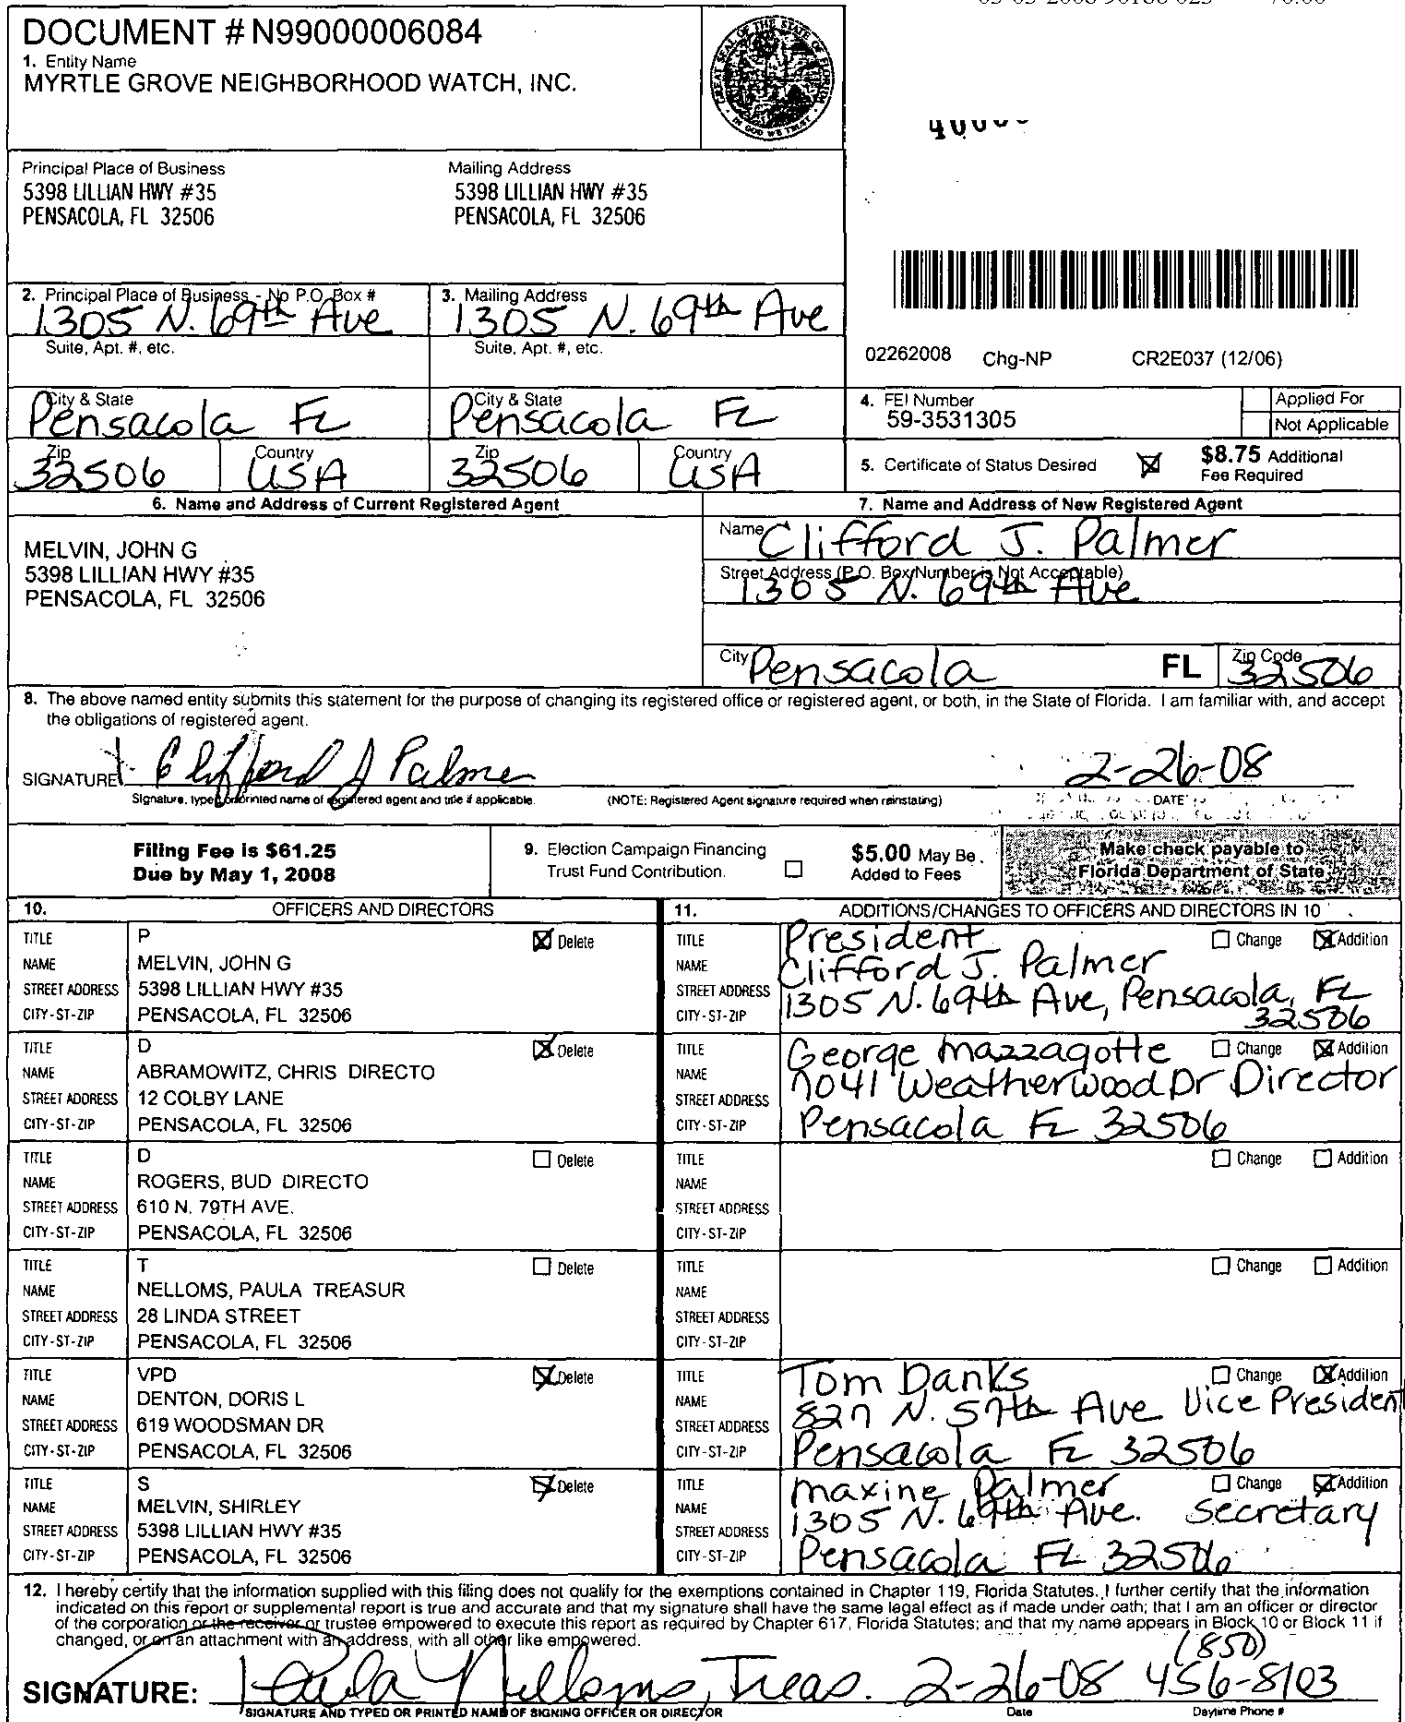 DOCUMENT # N99000006084
1. Entity Name
MYRTLE GROVE NEIGHBORHOOD WATCH, INC.
GREAT SEAL OF THE STATE OF FLORIDA
IN GOD WE TRUST
Principal Place of Business
5398 LILLIAN HWY #35
PENSACOLA, FL 32506
Mailing Address
5398 LILLIAN HWY #35
PENSACOLA, FL 32506
2. Principal Place of Business - No P.O. Box #
1305 N. 69th Ave
Suite, Apt. #, etc.
City & State
Pensacola FL
Zip
32506
Country
USA
3. Mailing Address
1305 N. 69th Ave
Suite, Apt. #, etc.
City & State
Pensacola FL
Zip
32506
Country
USA
02262008 Chg-NP CR2E037 (12/06)
4. FEI Number
59-3531305
Applied For
Not Applicable
5. Certificate of Status Desired
$8.75 Additional
Fee Required
6. Name and Address of Current Registered Agent
MELVIN, JOHN G
5398 LILLIAN HWY #35
PENSACOLA, FL 32506
7. Name and Address of New Registered Agent
Name Clifford J. Palmer
Street Address (P.O. Box Number is Not Acceptable)
1305 N. 69th Ave
City Pensacola FL Zip Code 32506
8. The above named entity submits this statement for the purpose of changing its registered office or registered agent, or both, in the State of Florida. I am familiar with, and accept
the obligations of registered agent.
SIGNATURE Clifford J Palmer 2-26-08
Signature, typed or printed name of registered agent and title if applicable. (NOTE: Registered Agent signature required when reinstating) DATE
Filing Fee is $61.25
Due by May 1, 2008
9. Election Campaign Financing
Trust Fund Contribution.
$5.00 May Be
Added to Fees
Make check payable to
Florida Department of State
10. OFFICERS AND DIRECTORS
TITLE P Delete
NAME MELVIN, JOHN G
STREET ADDRESS 5398 LILLIAN HWY #35
CITY-ST-ZIP PENSACOLA, FL 32506
TITLE D Delete
NAME ABRAMOWITZ, CHRIS DIRECTO
STREET ADDRESS 12 COLBY LANE
CITY-ST-ZIP PENSACOLA, FL 32506
TITLE D Delete
NAME ROGERS, BUD DIRECTO
STREET ADDRESS 610 N. 79TH AVE.
CITY-ST-ZIP PENSACOLA, FL 32506
TITLE T Delete
NAME NELLOMS, PAULA TREASUR
STREET ADDRESS 28 LINDA STREET
CITY-ST-ZIP PENSACOLA, FL 32506
TITLE VPD Delete
NAME DENTON, DORIS L
STREET ADDRESS 619 WOODSMAN DR
CITY-ST-ZIP PENSACOLA, FL 32506
TITLE S Delete
NAME MELVIN, SHIRLEY
STREET ADDRESS 5398 LILLIAN HWY #35
CITY-ST-ZIP PENSACOLA, FL 32506
11. ADDITIONS/CHANGES TO OFFICERS AND DIRECTORS IN 10
TITLE President Change Addition
NAME Clifford J. Palmer
STREET ADDRESS 1305 N. 69th Ave, Pensacola, FL
CITY-ST-ZIP 32506
TITLE George Mazzagotte Change Addition
NAME 7041 Weatherwood Dr Director
STREET ADDRESS
CITY-ST-ZIP Pensacola FL 32506
TITLE Change Addition
NAME
STREET ADDRESS
CITY-ST-ZIP
TITLE Change Addition
NAME
STREET ADDRESS
CITY-ST-ZIP
TITLE Tom Danks Change Addition
NAME 827 N. 57th Ave Vice President
STREET ADDRESS
CITY-ST-ZIP Pensacola FL 32506
TITLE Maxine Palmer Change Addition
NAME 1305 N. 69th Ave. Secretary
STREET ADDRESS
CITY-ST-ZIP Pensacola FL 32506
12. I hereby certify that the information supplied with this filing does not qualify for the exemptions contained in Chapter 119, Florida Statutes. I further certify that the information
indicated on this report or supplemental report is true and accurate and that my signature shall have the same legal effect as if made under oath; that I am an officer or director
of the corporation or the receiver or trustee empowered to execute this report as required by Chapter 617, Florida Statutes; and that my name appears in Block 10 or Block 11 if
changed, or on an attachment with an address, with all other like empowered.
(850)
SIGNATURE: Paula Nelloms, Treas. 2-26-08 456-8103
SIGNATURE AND TYPED OR PRINTED NAME OF SIGNING OFFICER OR DIRECTOR Date Daytime Phone #